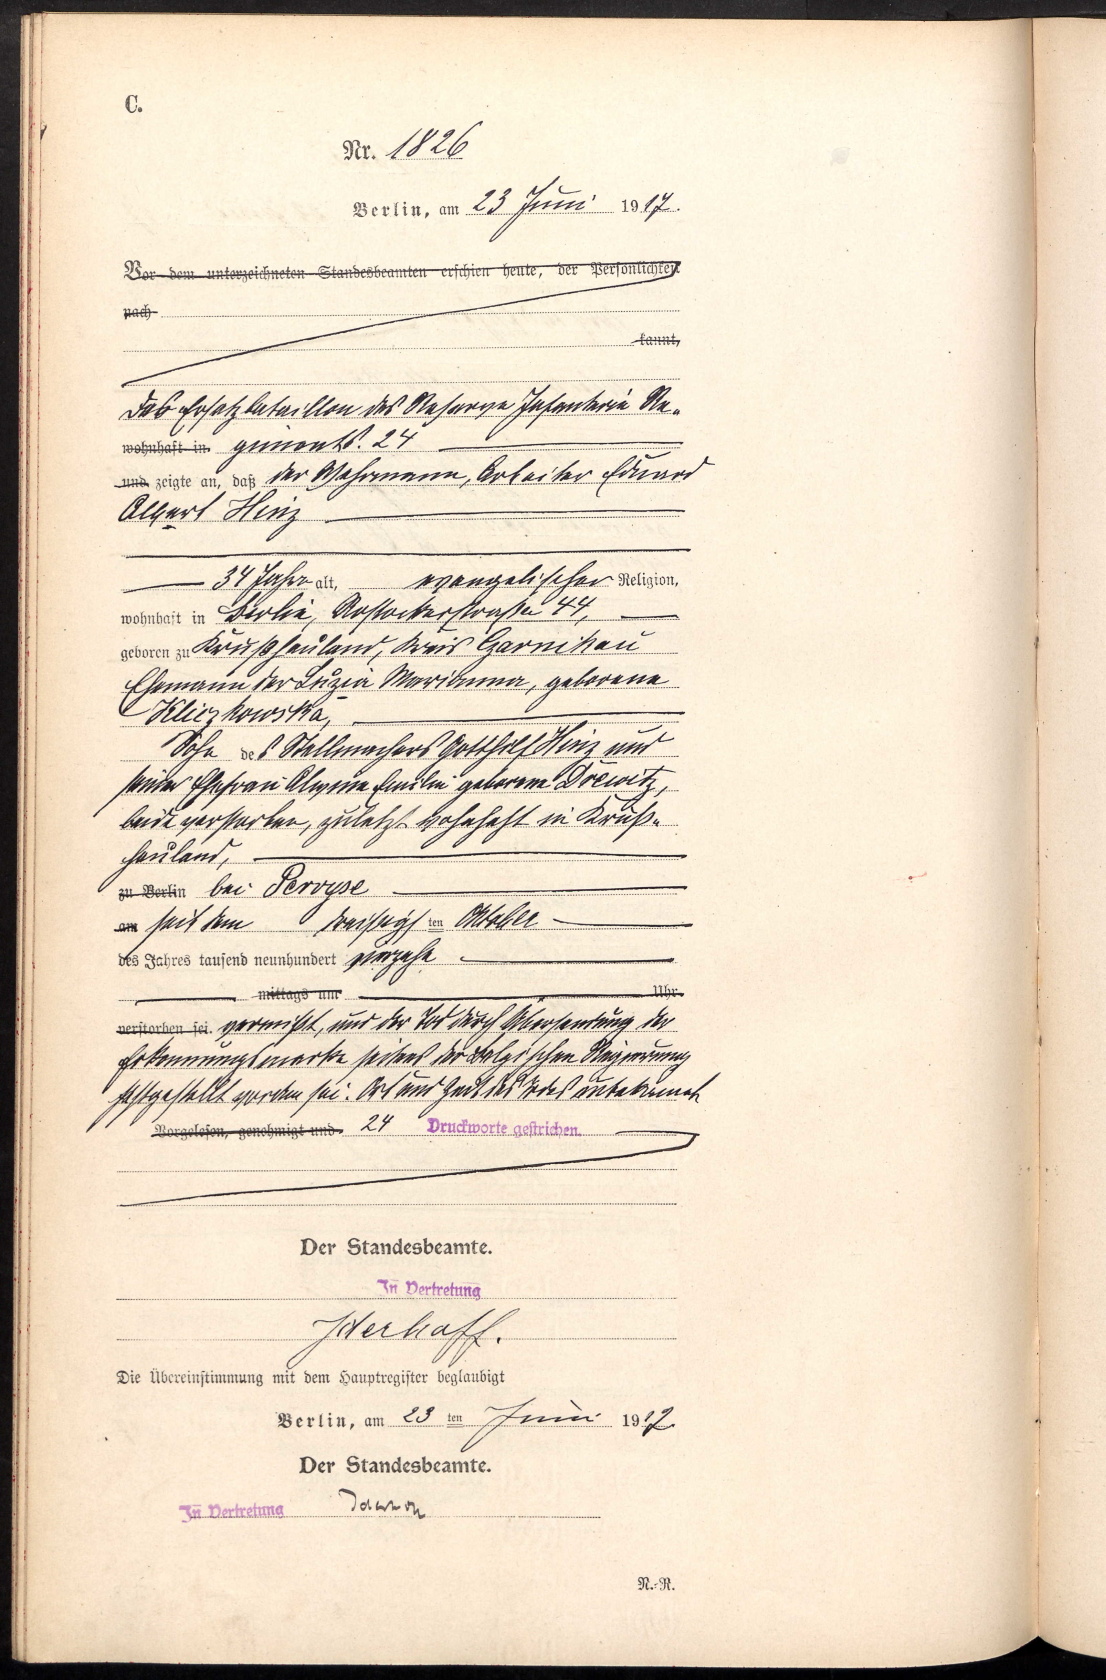 C.
Nr. 1826
Berlin, am 23 Juni 1917.
Vor dem unterzeichneten Standesbeamten erschien heute, der Persönlichkeit
nach
kannt,
Das Ersatzbataillon des Reserve Infanterie Re-
wohnhaft in giments. 24
und zeigte an, daß der Wehrmann, Arbeiter Eduard
Albert Hinz
34 Jahre alt, evangelischer Religion,
wohnhaft in Berlin, Rostockerstraße 44,
geboren zu Krußhauland, Kreis Czarnikau
Ehemann der Luzia Marianna, geborene
Kliczkowska,
Sohn des Stellmachers Gotthilf Hinz und
seiner Ehefrau Alwine Emilie geborene Drewitz,
beide verstorben, zuletzt wohnhaft in Kruß-
hauland,
zu Berlin bei Pervyse
am seit dem dreißigsten Oktober
des Jahres tausend neunhundert vierzehn
mittags um Uhr
verstorben sei. vermißt, und der Tod durch Übersendung der
Erkennungsmarke seitens der Belgischen Regierung
festgestellt worden sei. Ort und Zeit des Todes unbekannt
Vorgelesen, genehmigt und 24 Druckworte gestrichen.
Der Standesbeamte.
In Vertretung
Die Übereinstimmung mit dem Hauptregister beglaubigt
Berlin, am 23 ten Juni 1917
Der Standesbeamte.
In Vertretung
N.-R.